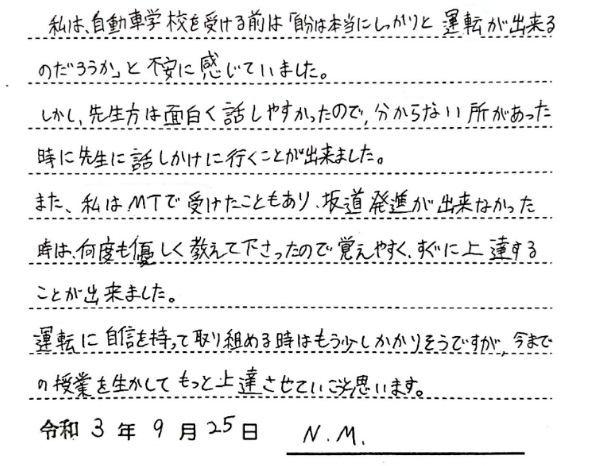 私は、自動車学校を受ける前は「自分は本当にしっかりと運転が出来る
のだろうか」と不安に感じていました。
しかし、先生方は面白く話しやすかったので、分からない所があった
時に先生に話しかけに行くことが出来ました。
また、私はMTで受けたこともあり、坂道発進が出来なかった
時は、何度も優しく教えて下さったので覚えやすく、すぐに上達する
ことが出来ました。
運転に自信を持って取り組める時はもう少しかかりそうですが、今まで
の授業を生かしてもっと上達させていこうと思います。
令和3年9月25日 N.M.